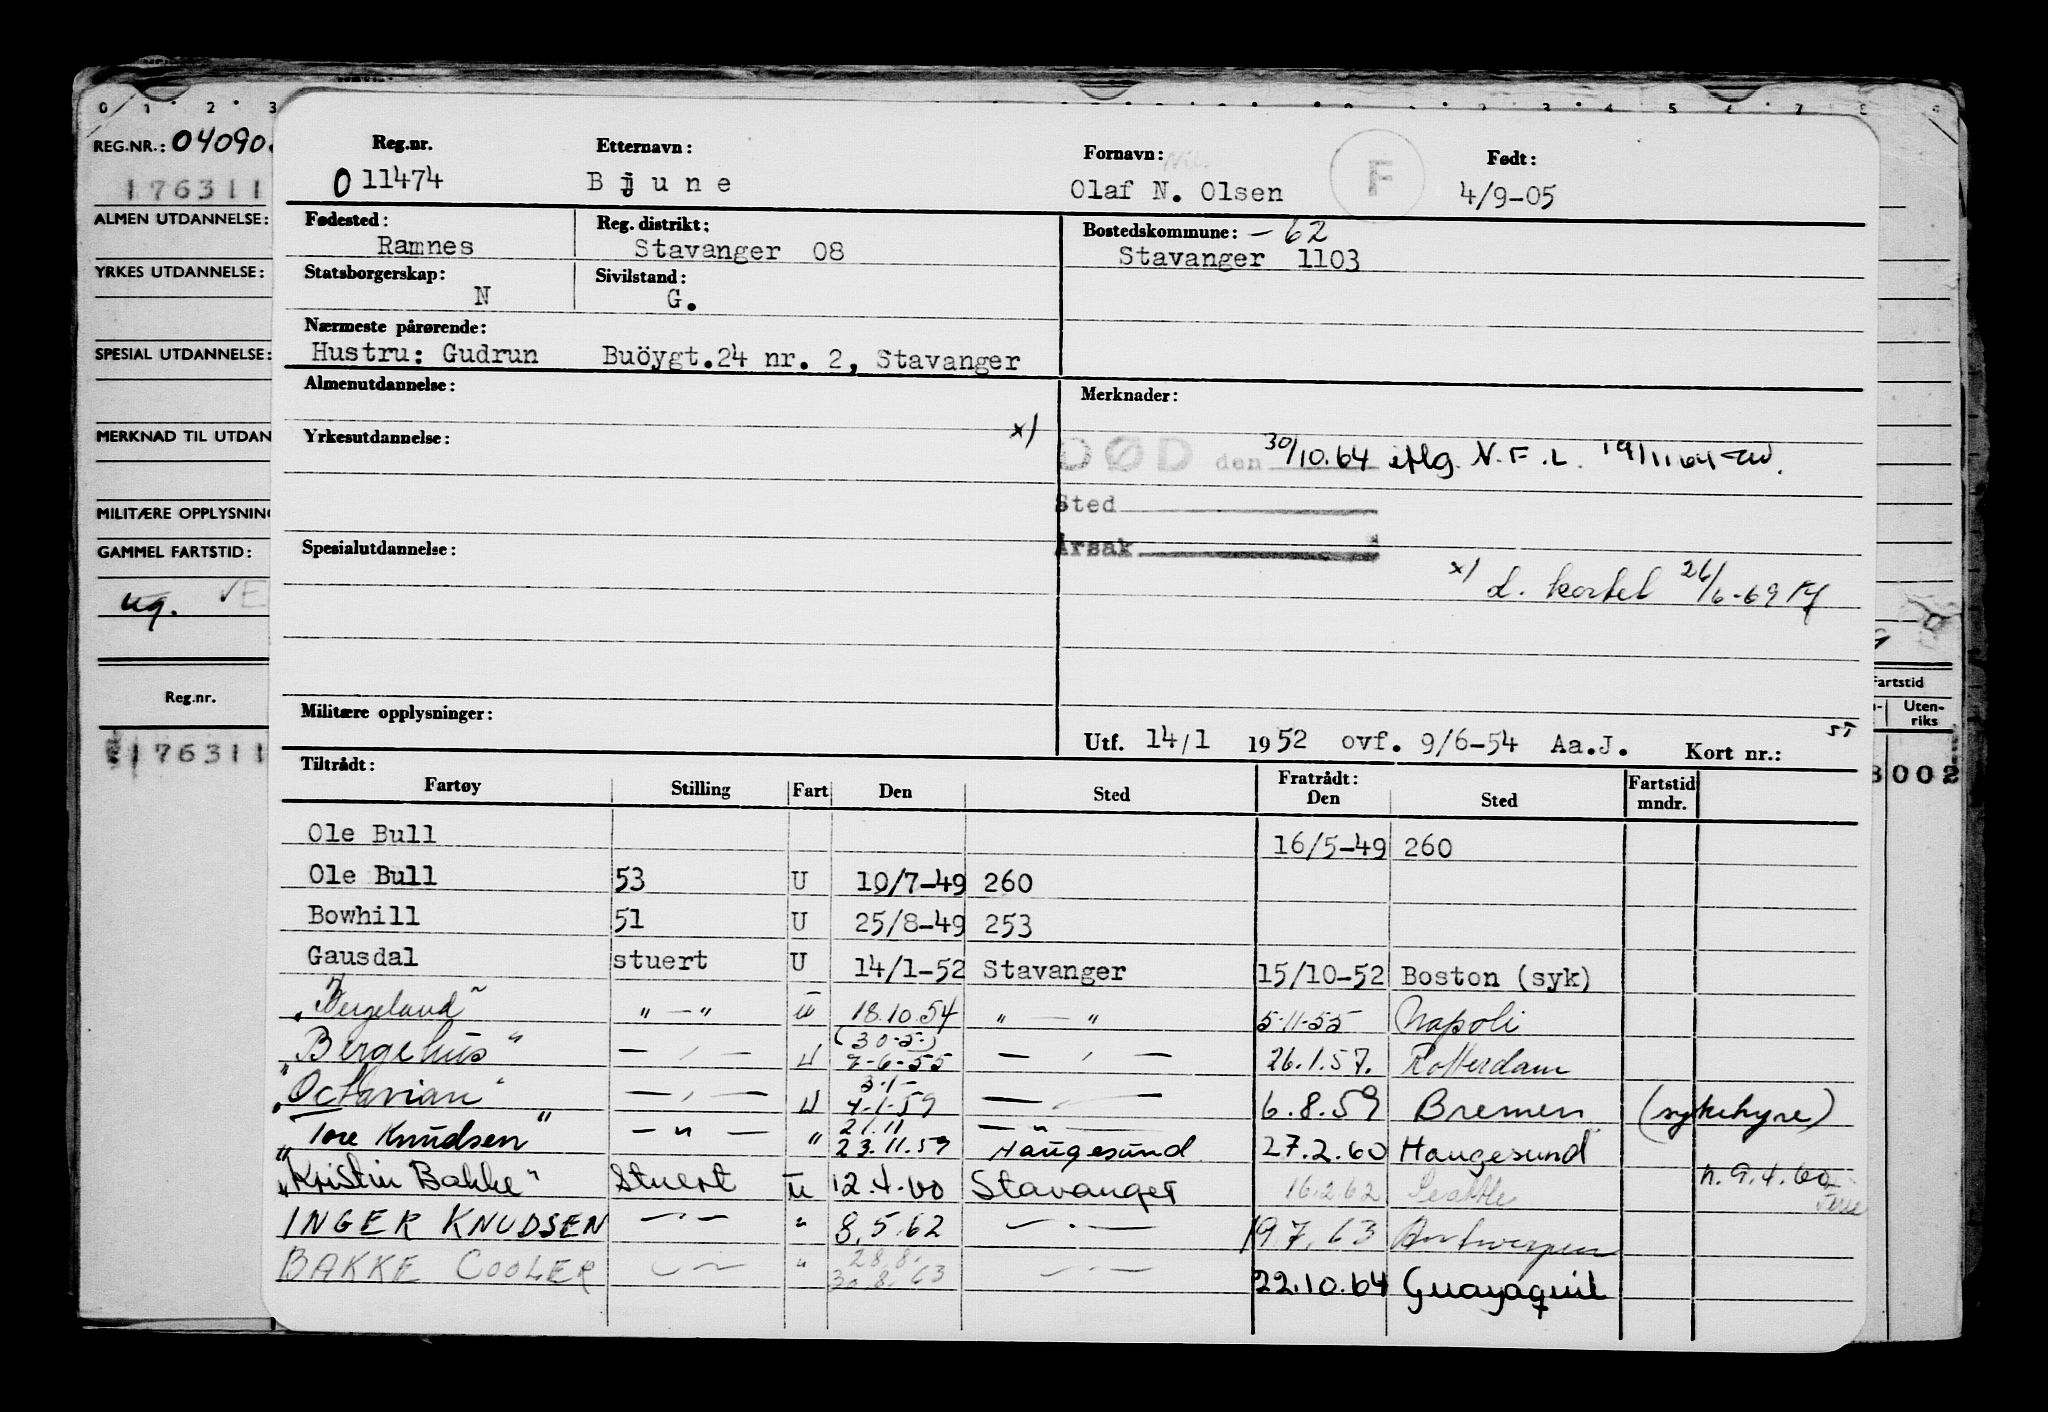 0 1 2 3 2 3 4 5 6 7 8 9
REG.NR.: 04090
176311
ALMEN UTDANNELSE:
YRKES UTDANNELSE:
SPESIAL UTDANNELSE:
MERKNAD TIL UTDAN
MILITÆRE OPPLYSNING
GAMMEL FARTSTID:
ug. VE
Reg.nr.
176311
Fartstid
Uten-
riks
3002
Reg.nr. Etternavn: Fornavn: Nils F Født:
011474 Bjune Olaf N. Olsen 4/9-05
Fødested: Reg. distrikt: Bostedskommune: -62
Ramnes Stavanger 08 Stavanger 1103
Statsborgerskap: Sivilstand:
N G.
Nærmeste pårørende:
Hustru: Gudrun Buöygt.24 nr. 2, Stavanger
Almenutdannelse: Merknader:
Yrkesutdannelse: x)
DØD den 30/10.64 iflg. N.F.L. 19/11 64
Sted
Årsak
Spesialutdannelse:
x) d. kortet 26/6-69
Militære opplysninger:
Utf. 14/1 1952 ovf. 9/6-54 Aa.J. Kort nr.: 55
Tiltrådt: Fratrådt: Fartstid
Fartøy Stilling Fart Den Sted Den Sted mndr.
Ole Bull 16/5-49 260
Ole Bull 53 U 10/7-49 260
Bowhill 51 U 25/8-49 253
Gausdal stuert U 14/1-52 Stavanger 15/10-52 Boston (syk)
"Bergeland" " — " U 18.10.54 " — " 5-11-55 Napoli
(30-5-)
"Bergehus" — , — U 7-6-55 — , — 26.1.57. Rotterdam
3-1-
"Octavian" — , — U 4-1-59 — — 6.8.59 Bremen (sykehyre)
21.11
"Tore Knudsen" — " — " 23.11.59 — " — Haugesund 27.2.60 Haugesund
"Kristin Bakke" Stuert U 12.4.60 Stavanger 16.2.62 Seattle n. 9.4.60
Ferie
INGER KNUDSEN — " — " 8.5.62 — " — 19.7.63 Antwerpen
28.8.
BAKKE COOLER — " — " 30.8.63 — " — 22.10.64 Guayaquil